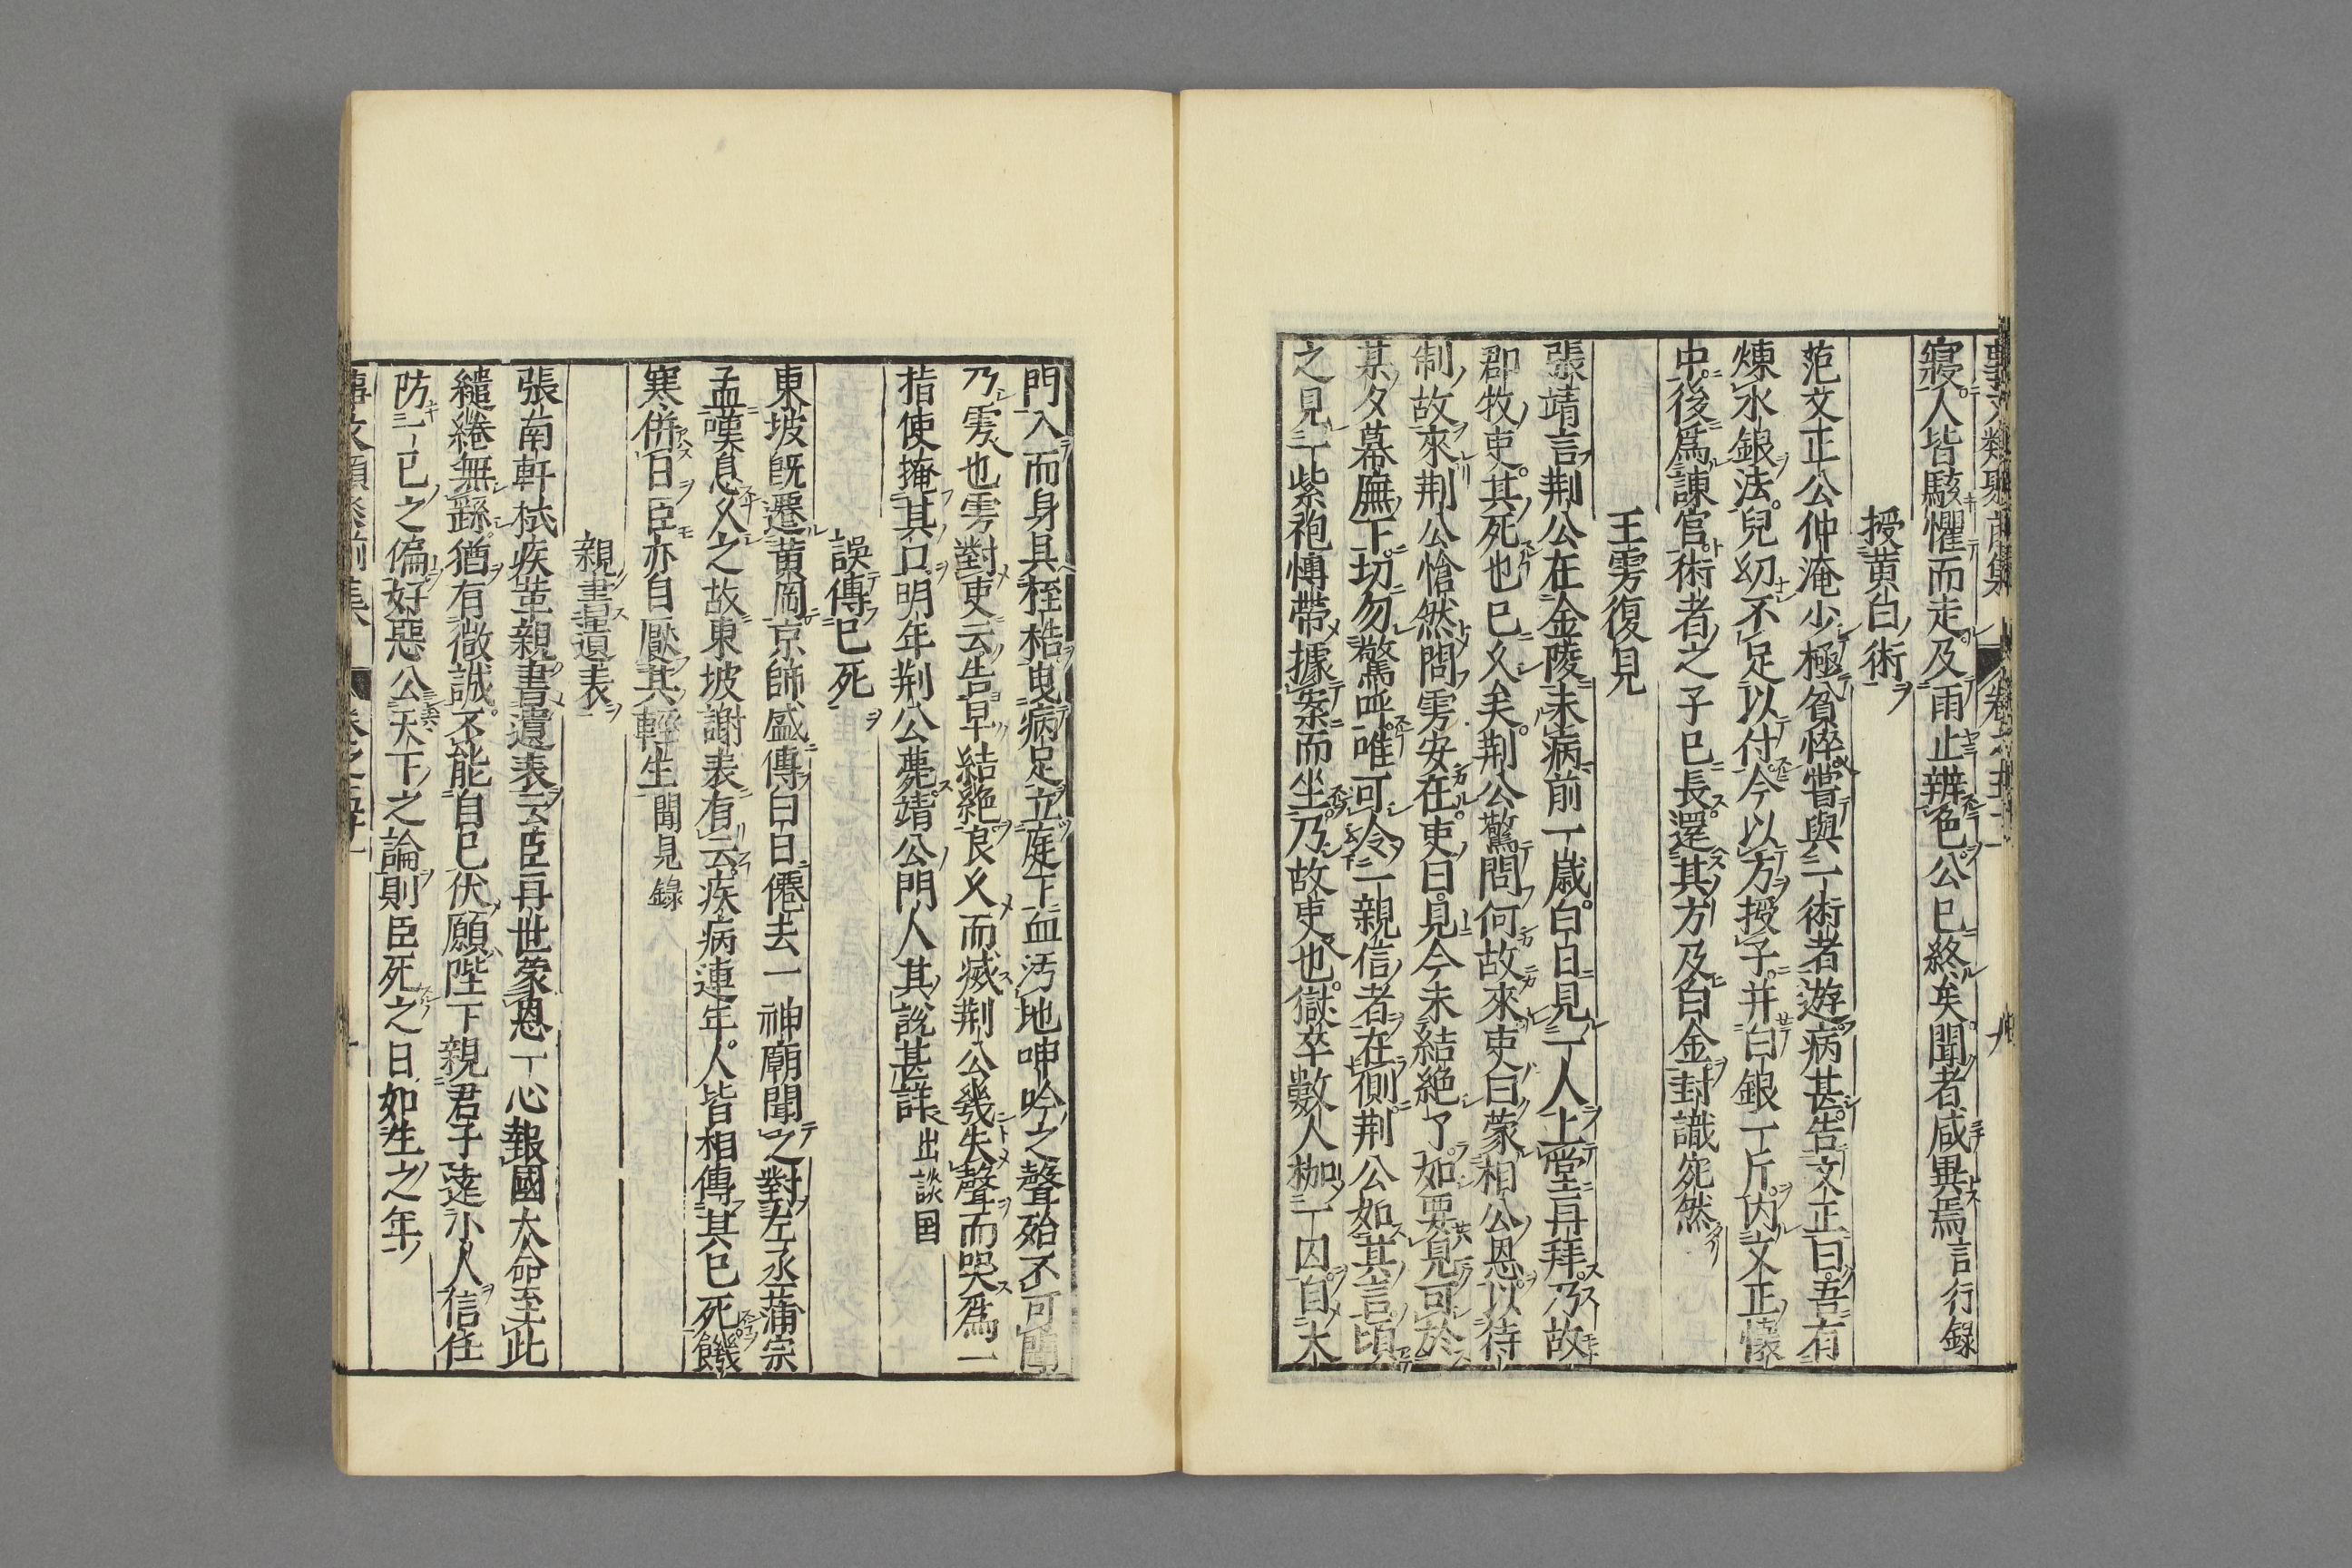 寢人皆駭懼而走及雨止辨色公已終矣聞者咸異焉言行録
授黄白術
范文正公仲淹少極貧悴嘗與一術者遊病甚告文正曰吾有
煉水銀法兒幼不足以付今以方授子并白銀一斤内文正懷
中後爲諫官術者之子已長還其方及白金封識宛然
王雱復見
張靖言荆公在金陵未病前一歳白日見一人上堂再拜乃故
郡牧吏其死也已久矣荆公驚問何故來吏曰蒙相公恩以待
制故來荆公愴然問雱安在吏曰見今未結絶了如要見可於
某夕幕廡下切勿驚呼唯可令一親信者在側荆公如其言頃
之見一紫袍博帶據案而坐乃故吏也獄卒數人枷一囚自大
門入而身具桎梏曳病足立庭下血汚地呻吟之聲殆不可聞
乃雱也雱對吏云告早結絶良久而滅荆公幾失聲而哭爲一
指使掩其口明年荆公薨靖公門人其說甚詳出談囯
誤傳已死
東坡既遷黄岡京師盛傳白日僊去一神廟聞之對左丞蒲宗
孟嘆息久之故東坡謝表有云疾病連年人皆相傳其已死饑
寒併日臣亦自厭其輕生聞見録
親書遺表
張南軒栻疾革親書遺表云臣再世蒙恩一心報國大命至此
繾綣無繇猶有微誠不能自已伏願陛下親君子遠小人信任
防一己之偏好惡公天下之論則臣死之日如生之年